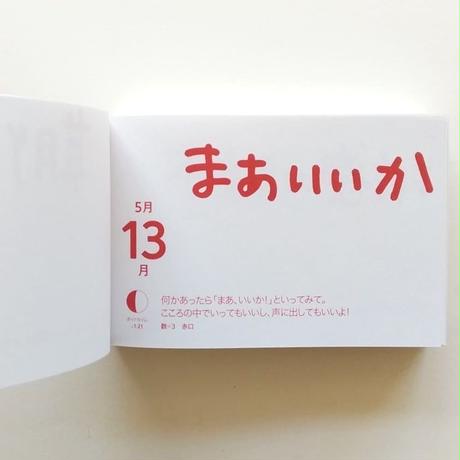 まあいいか
5月
13
月
何かあったら「まあ、いいか!」といってみて。
こころの中でいってもいいし、声に出してもいいよ!
数=3 赤口